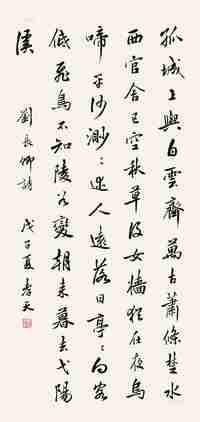 孤城上與白雲齊萬古蕭條楚水
西官舍已空秋草没女墻猶在夜烏
啼平沙渺々迷人遠落日亭々向客
低飛鳥不知陵谷變朝來暮去弋陽
溪
劉長卿詩 戊子夏